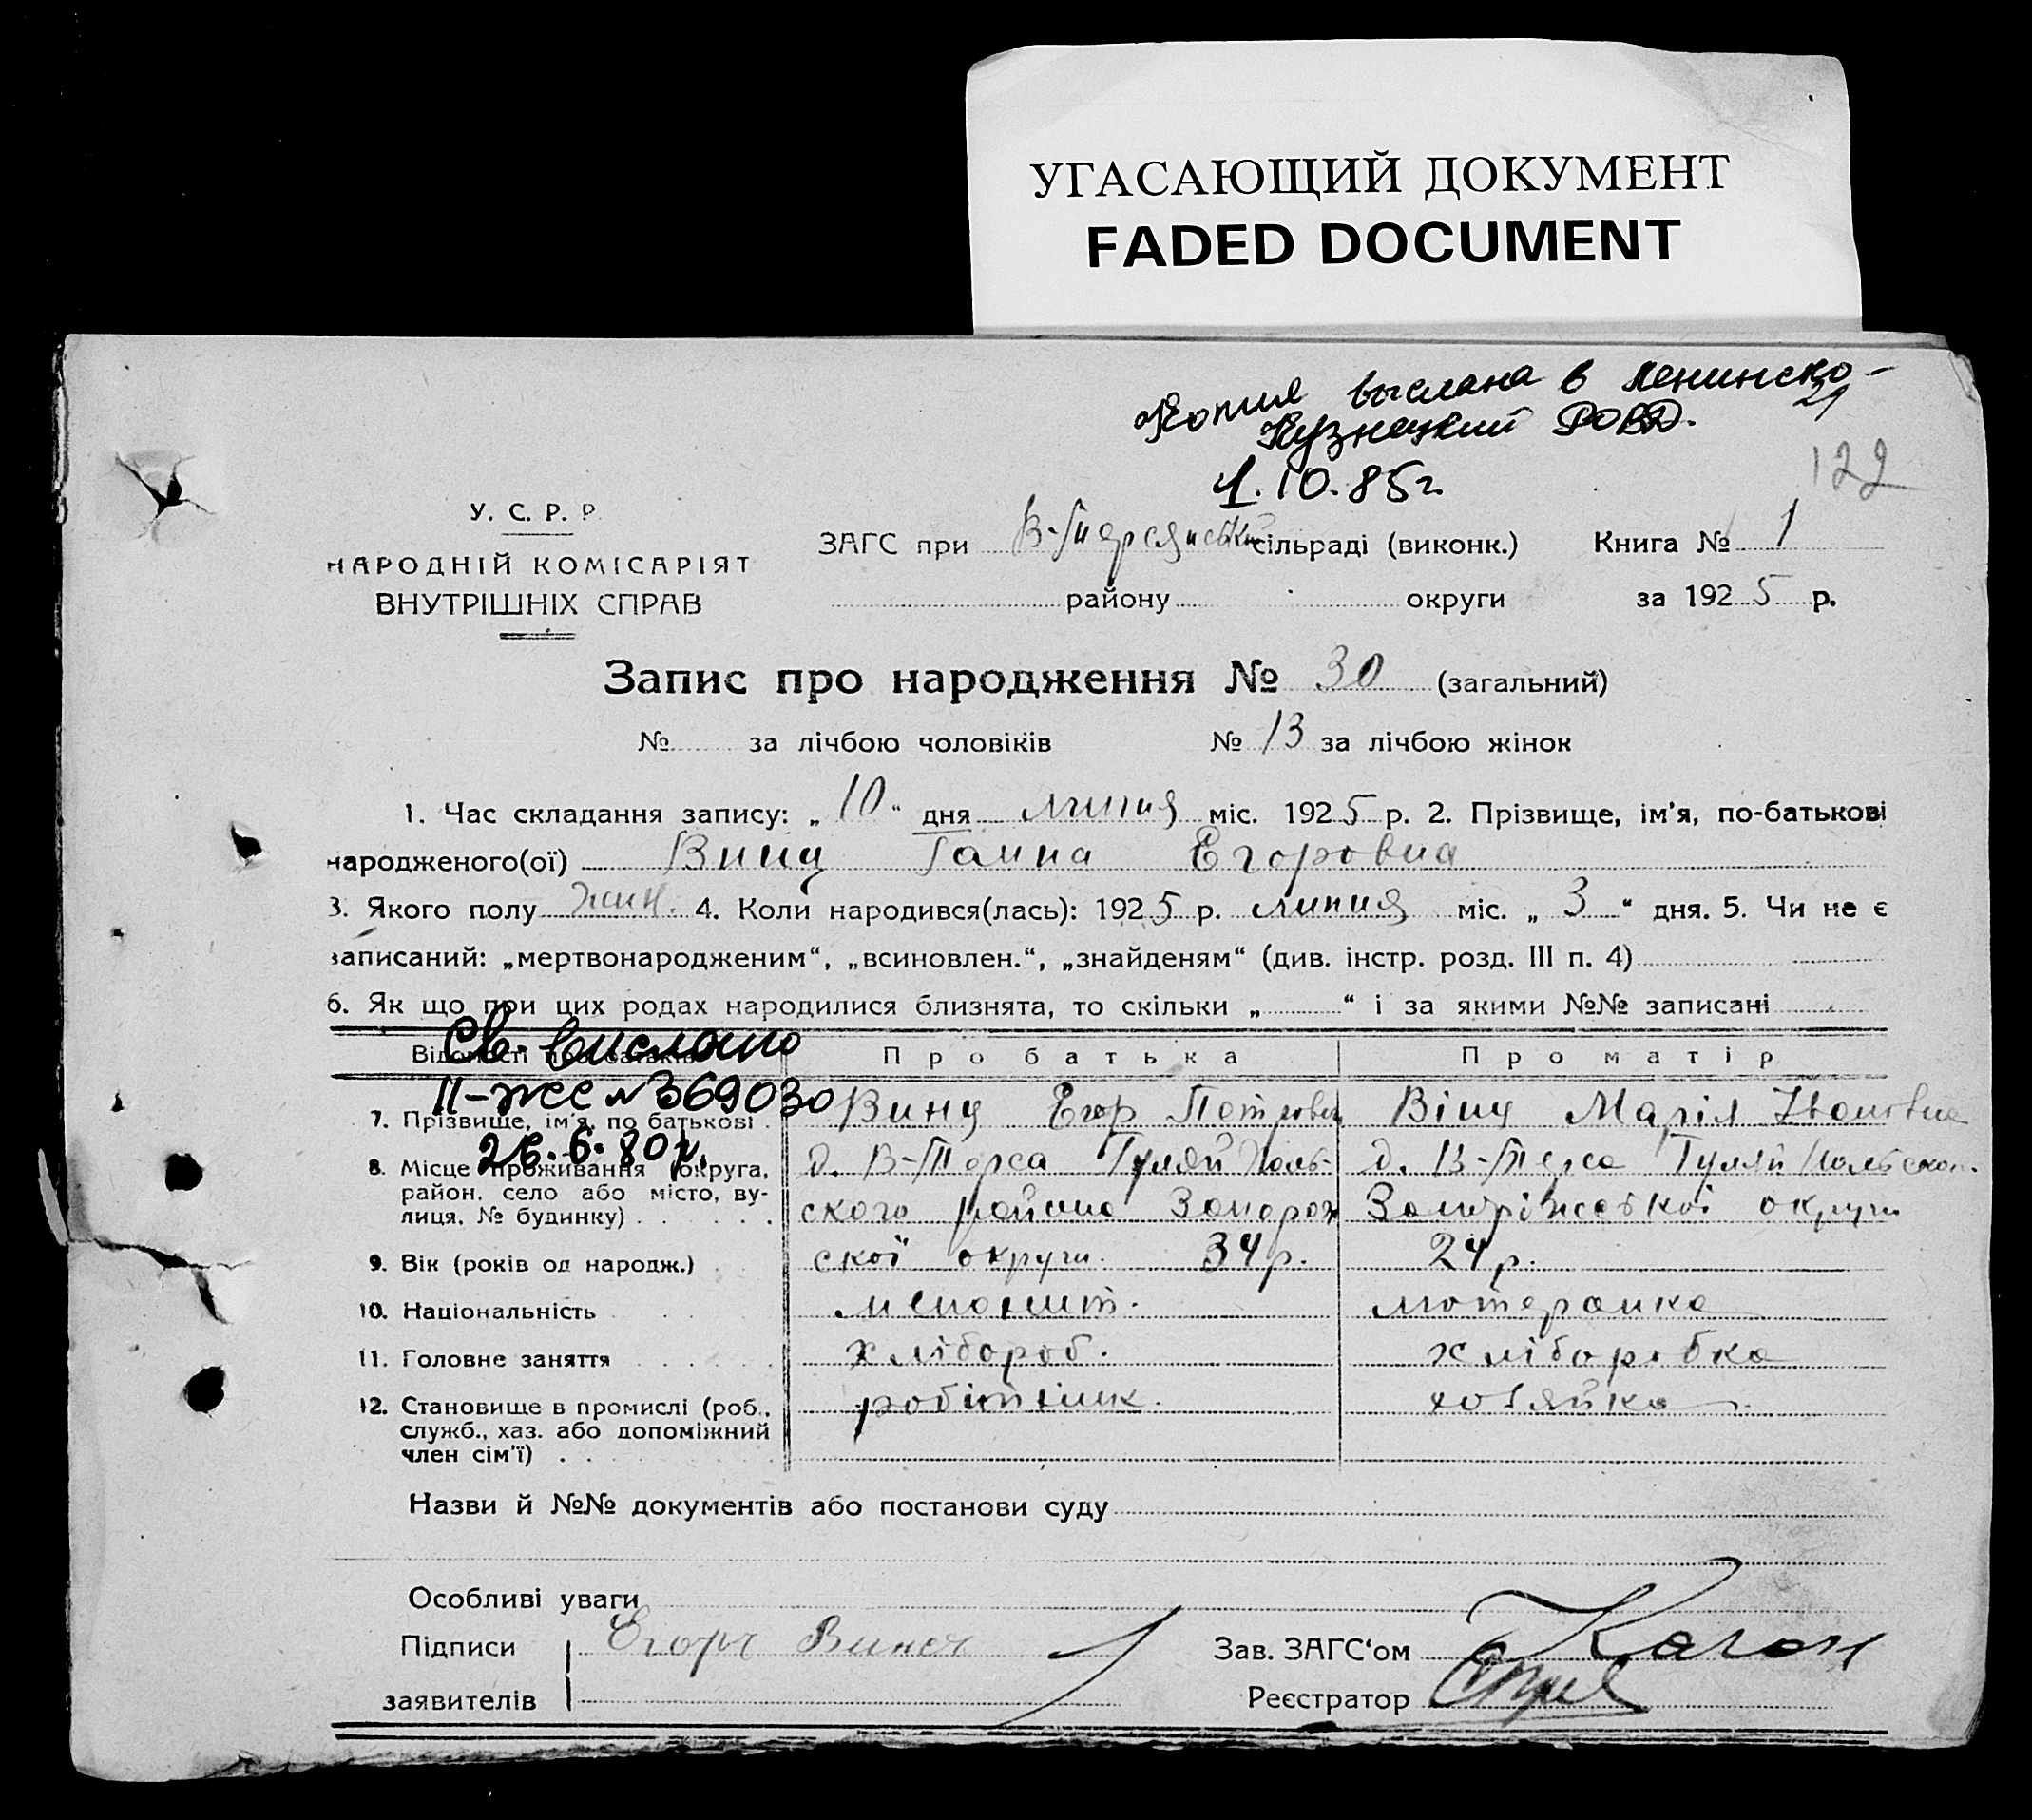 УГАСАЮЩИЙ ДОКУМЕНТ
FADED DOCUMENT
Копия выслана в Ленинско-
Кузнецкий РОВД.
21
1.10.85г.
122
У. С. Р. Р.
НАРОДНІЙ КОМІСАРІЯТ
ВНУТРІШНІХ СПРАВ
ЗАГС при сільраді (виконк.) Книга № 1
району округи за 1925 р.
Запис про народження № 30 (загальний)
№ за лічбою чоловіків № 13 за лічбою жінок
1. Час складання запису: „10“ дня липня міс. 1925 р. 2. Прізвище, ім'я, по-батькові
народженого(ої) Винц Ганна Егоровна
3. Якого полу жін. 4. Коли народився(лась): 1925 р. липня міс. „3“ дня. 5. Чи не є
записаний: „мертвонародженим“, „всиновлен.“, „знайденям“ (див. інстр. розд. III п. 4)
6. Як що при цих родах народилися близнята, то скільки „ “ і за якими №№ записані
Св. вислано
II-ЖС №369030
26.6.80р.
Відомості про батьків Про батька Про матір
7. Прізвище, ім'я, по батькові Винц Егор Петрович Вінц Марія Ивановна
8. Місце проживання (округа, район, село або місто, ву-
лиця, № будинку)
д. В-Терса Гуляйполь-
ского району Запорож
скої округи.
д. В-Терса Гуляйпольскою.
Запоріжської округи
9. Вік (років од народж.) 34р. 24р.
10. Національність менонит. лютеранка
11. Головне заняття хлібороб. хліборобка
12. Становище в промислі (роб., служб., хаз. або допоміжний
член сім'ї)
робітник. хозяйка
Назви й №№ документів або постанови суду
Особливі уваги
Підписи Егоръ Винсъ Зав. ЗАГС'ом Каган
заявителів Реєстратор